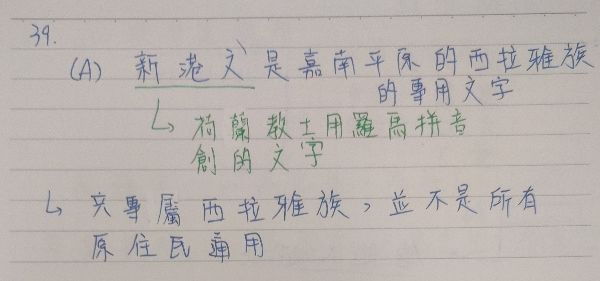 39.
(A) 新港文是嘉南平原的西拉雅族
的專用文字
↳ 荷蘭教士用羅馬拼音
創的文字
↳ 只專屬西拉雅族，並不是所有
原住民通用